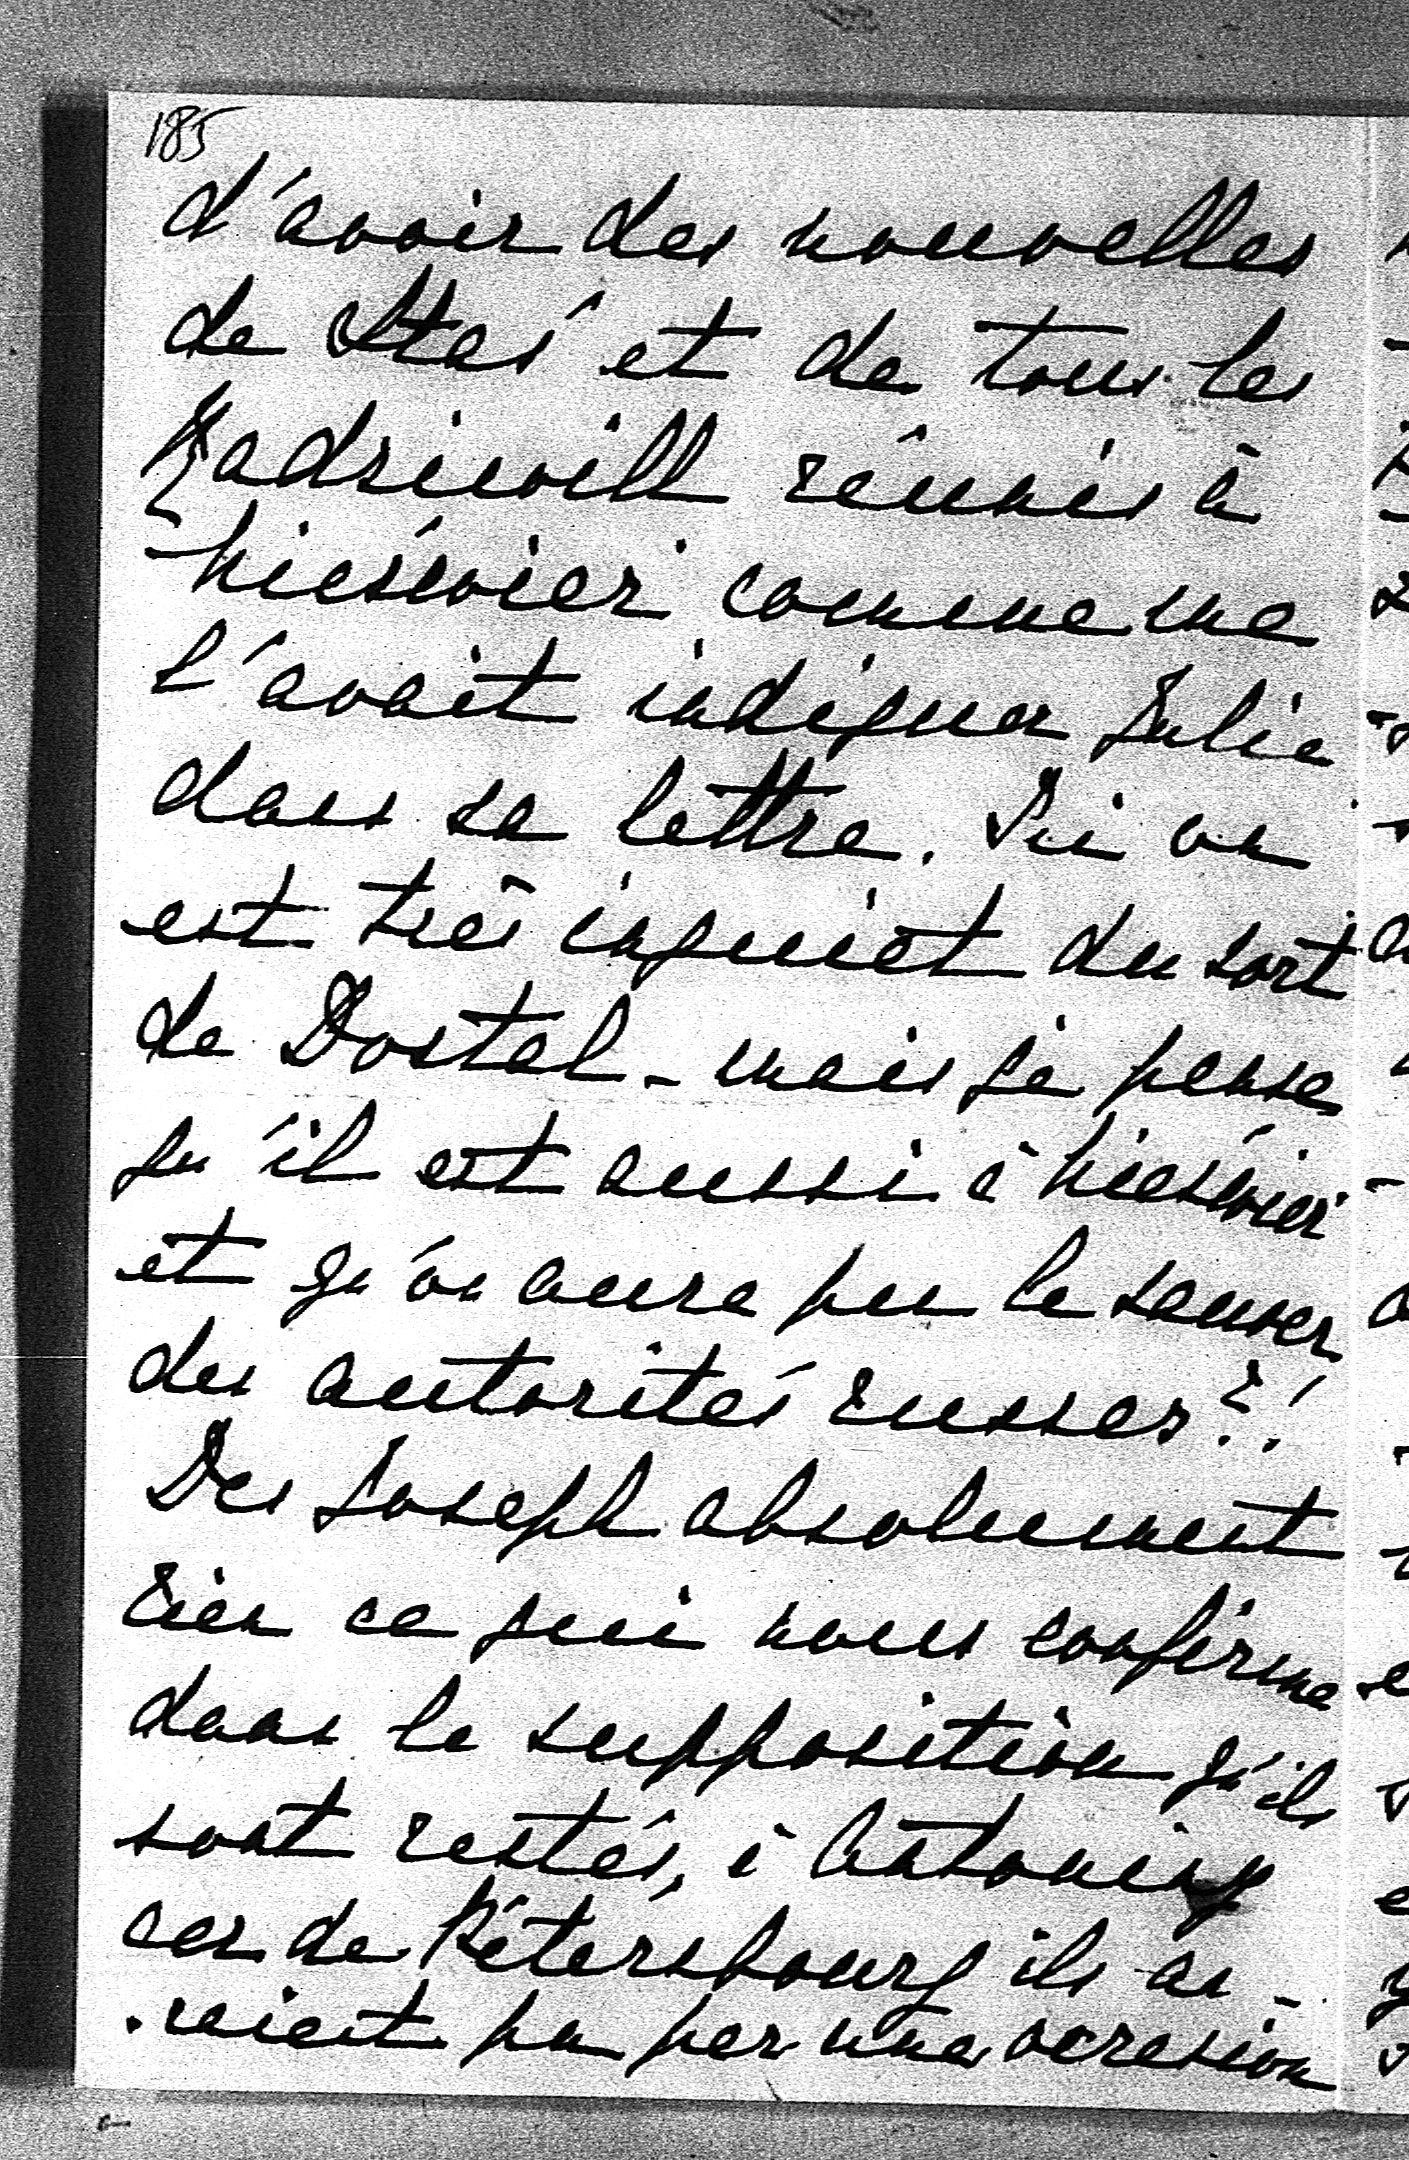 185
d'avoir des nouvelles
de Staś et de tous les
Radziwill réunis à
Nieśwież comme me
l'avait indiquer Julie
dans sa lettre. Ici on
est très inquiet du sort
de Dostal - mais je pense
qu'il est aussi à Nieśwież
et qu'on aura pu le sauver
des autorités russes?!
Des Joseph absolument
rien ce qui nous confirme
dans la supposition qu'ils
sont restés, à Antoniny
car de Pétersbourg ils au-
raient pu par une occasion